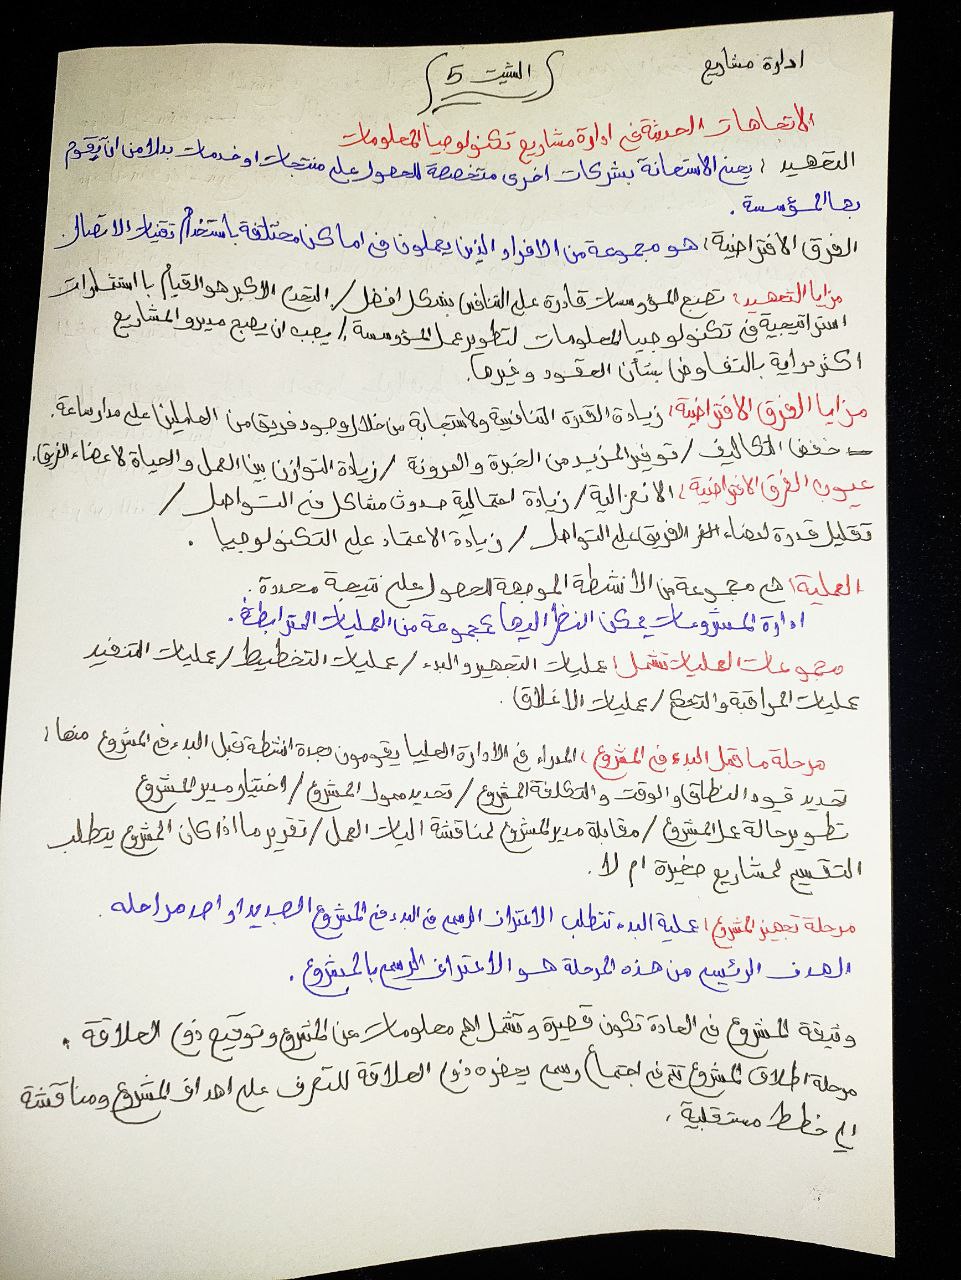 ادارة مشاريع
الشيت 5
الاتجاهات الحديثة في ادارة مشاريع تكنولوجيا المعلومات
التعهيد : يعني الاستعانة بشركات اخرى متخصصة للحصول على منتجات او خدمات بدلا من ان تقوم
بها المؤسسة .
الفرق الافتراضية : هو مجموعة من الافراد الذين يعملون في اماكن مختلفة باستخدام تقنيات الاتصال .
مزايا التعهيد : تصبح المؤسسات قادرة على التنافس بشكل افضل / التحدي الاكبر هو القيام با استثمارات
استراتيجية في تكنولوجيا المعلومات لتطوير عمل المؤسسة / يجب ان يصبح مديرو المشاريع
اكثر دراية بالتفاوض بشأن العقود وغيرها .
مزايا الفرق الافتراضية : زيادة القدرة التنافسية والاستجابة من خلال وجود فريق من العاملين على مدار ساعة .
خفض التكاليف / توفير المزيد من الخبرة والمرونة / زيادة التوازن بين العمل والحياة لاعضاء الفريق .
عيوب الفرق الافتراضية : الانعزالية / زيادة احتمالية حدوث مشاكل في التواصل /
تقليل قدرة اعضاء الفريق على التواصل / زيادة الاعتماد على التكنولوجيا .
العملية : هي مجموعة من الأنشطة الموجهة للحصول على نتيجة محددة .
ادارة المشروعات يمكن النظر اليها كمجموعة من العمليات المترابطة .
مجموعات العمليات تشمل : عمليات التجهيز والبدء / عمليات التخطيط / عمليات التنفيذ
عمليات المراقبة والتحكم / عمليات الاغلاق .
مرحلة ما قبل البدء في المشروع : المدراء في الادارة العليا يقومون بعدة انشطة قبل البدء في المشروع منها :
تحديد قيود النطاق والوقت والتكلفة للمشروع / تحديد ممول المشروع / اختيار مدير المشروع
تطوير حالة عمل المشروع / مقابلة مدير المشروع لمناقشة اليات العمل / تقرير ما اذا كان المشروع يتطلب
التقسيم لمشاريع صغيرة ام لا .
مرحلة تجهيز المشروع : عملية البدء تتطلب الاعتراف الرسمي في البدء في المشروع الجديد او احد مراحله .
الهدف الرئيسي من هذه المرحلة هو الاعتراف الرسمي بالمشروع .
وثيقة المشروع في العادة تكون قصيرة وتشمل اهم معلومات عن المشروع وتوقيع ذوي العلاقة .
مرحلة اطلاق المشروع تتم في اجتماع رسمي يحضره ذوي العلاقة للتعرف على اهداف المشروع ومناقشة
اي خطط مستقبلية .